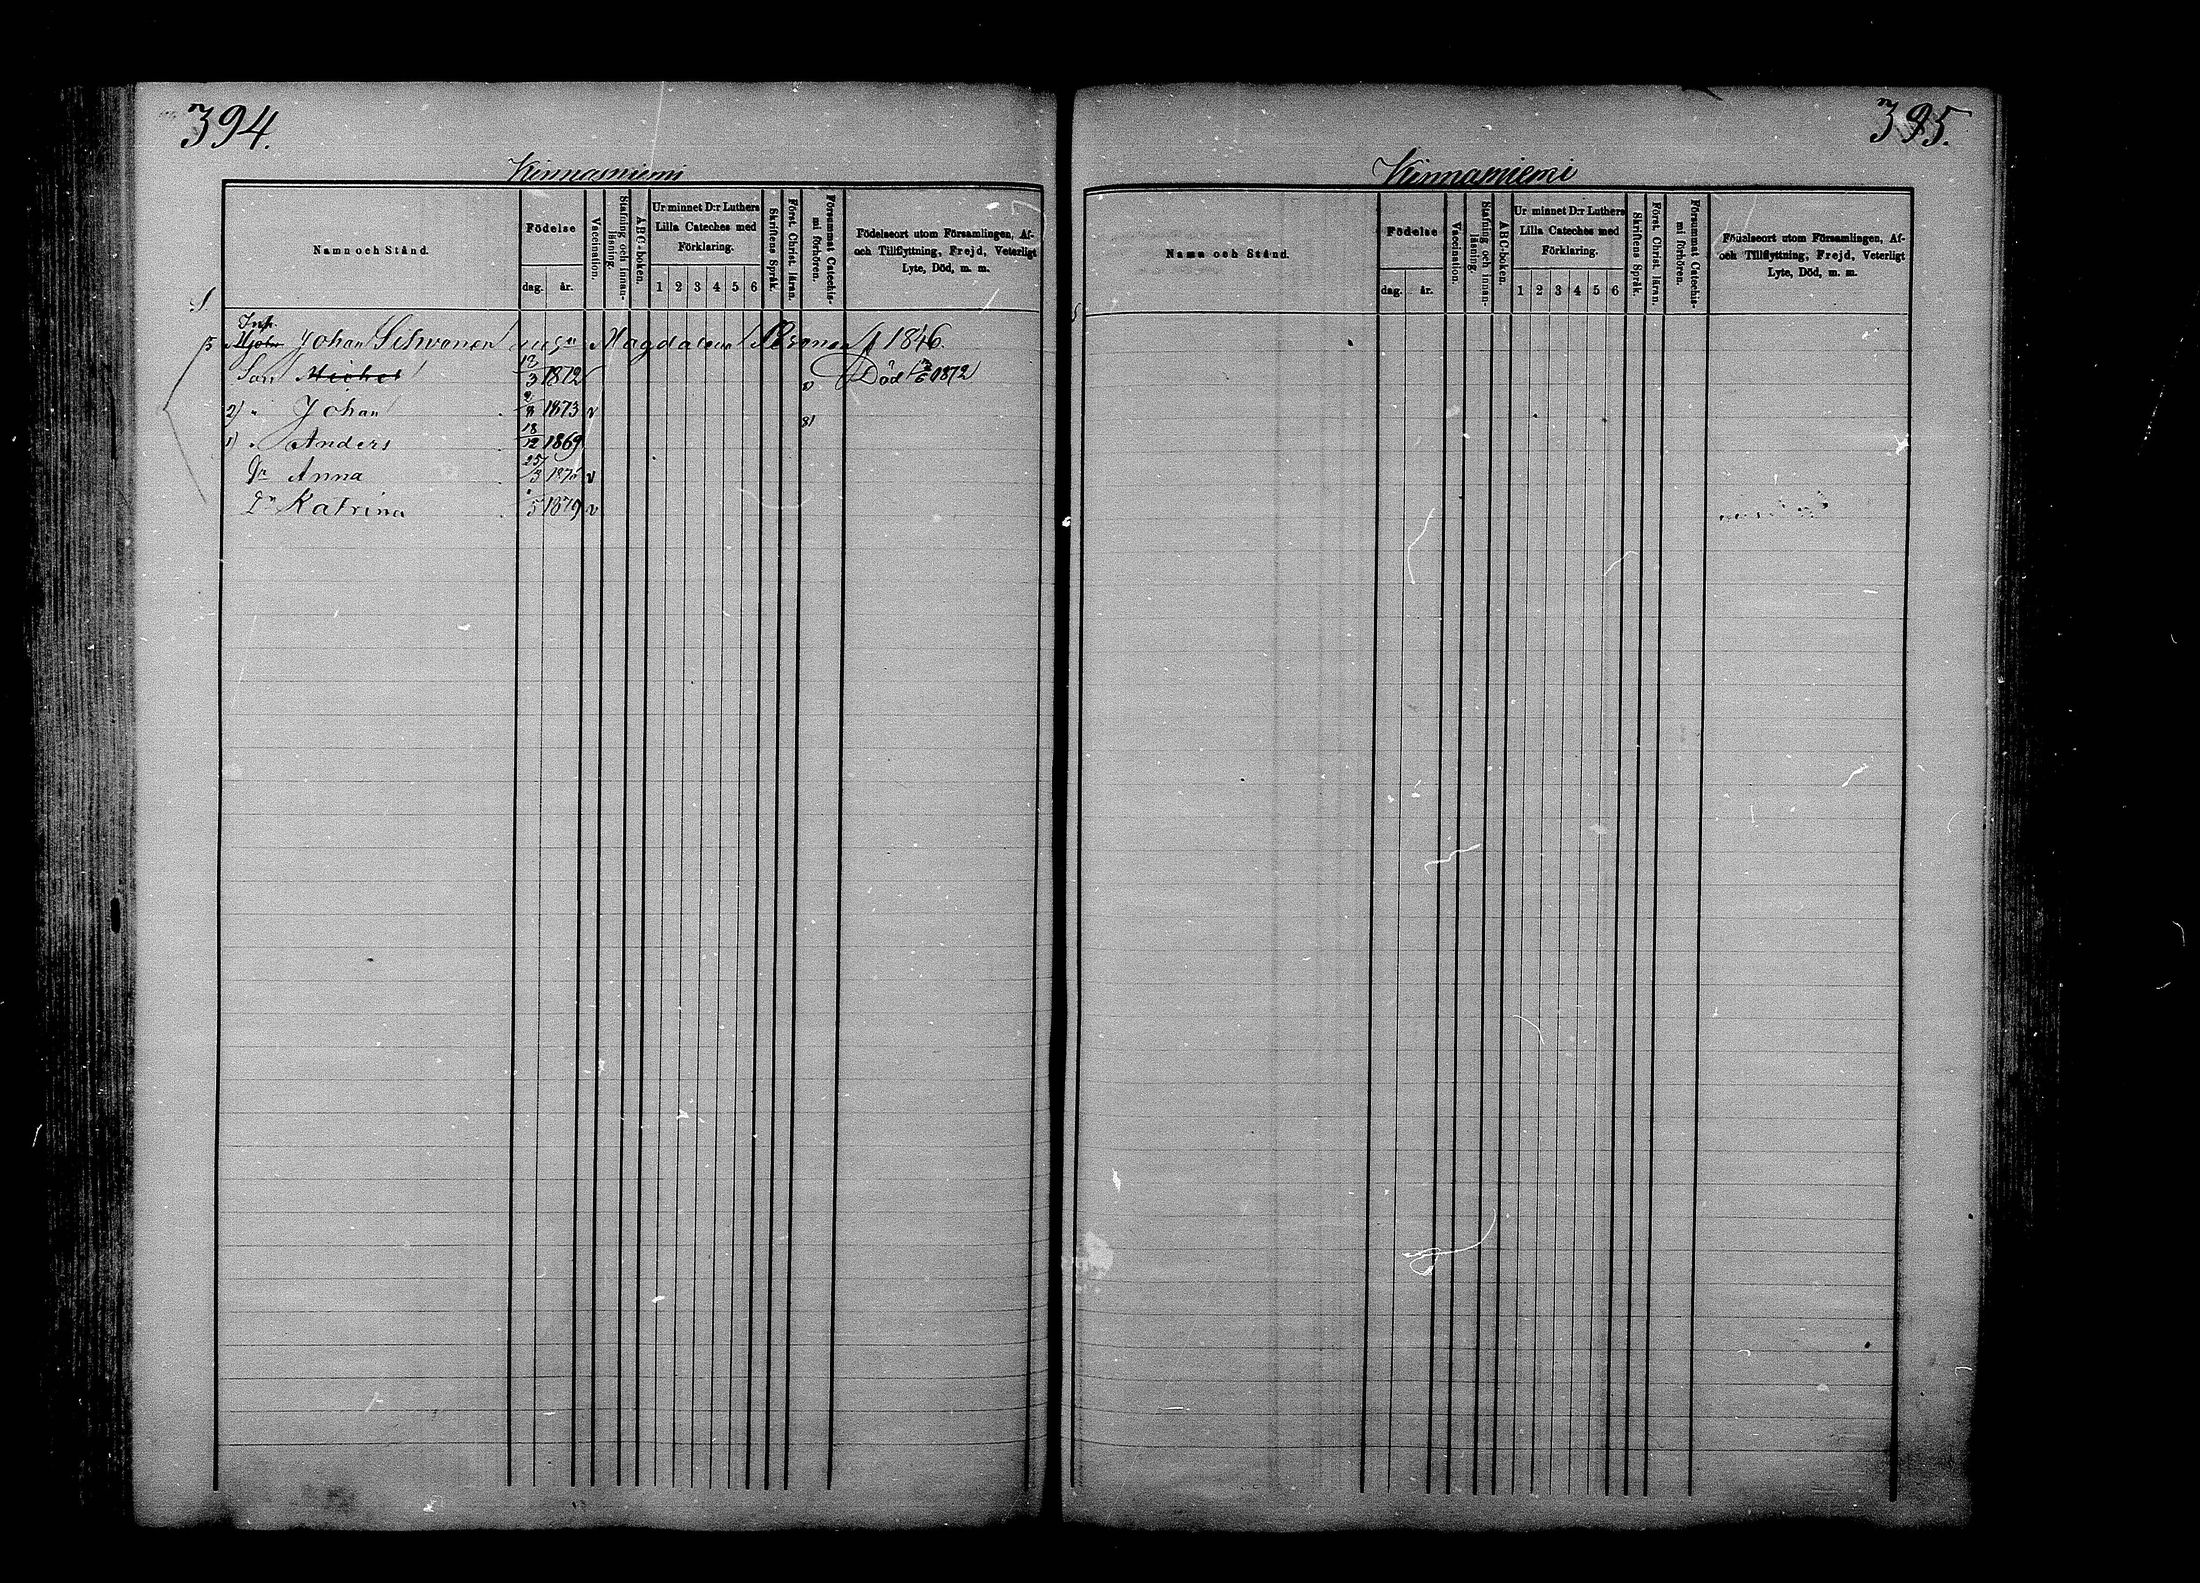 394.
Kinnasniemi
Namn och Stånd.
Födelse
dag. år.
Vaccination.
Stafning och innan-läsning.
ABC-boken.
Ur minnet D:r Luthers Lilla Cateches med Förklaring.
1 2 3 4 5 6
Skriftens Språk.
Först. Christ. läran.
Försummat Catechis-mi förhören.
Födelseort utom Församlingen, Af- och Tillflyttning, Frejd, Veterligt Lyte, Död, m. m.
Inh.
Johan Sihvonen Magdalena 1846.
Son Michel 12/3 1872 Död 1872
2) " Johan 1873 v
1) " Anders 18/12 1869
Dr Anna 25/3 v
Dr Katrina 5 1879 v
395.
Kinnasniemi
Namn och Stånd.
Födelse
dag. år.
Vaccination.
Stafning och innan-läsning.
ABC-boken.
Ur minnet D:r Luthers Lilla Cateches med Förklaring.
1 2 3 4 5 6
Skriftens Språk.
Först. Christ. läran.
Försummat Catechis-mi förhören.
Födelseort utom Församlingen, Af- och Tillflyttning, Frejd, Veterligt Lyte, Död, m. m.